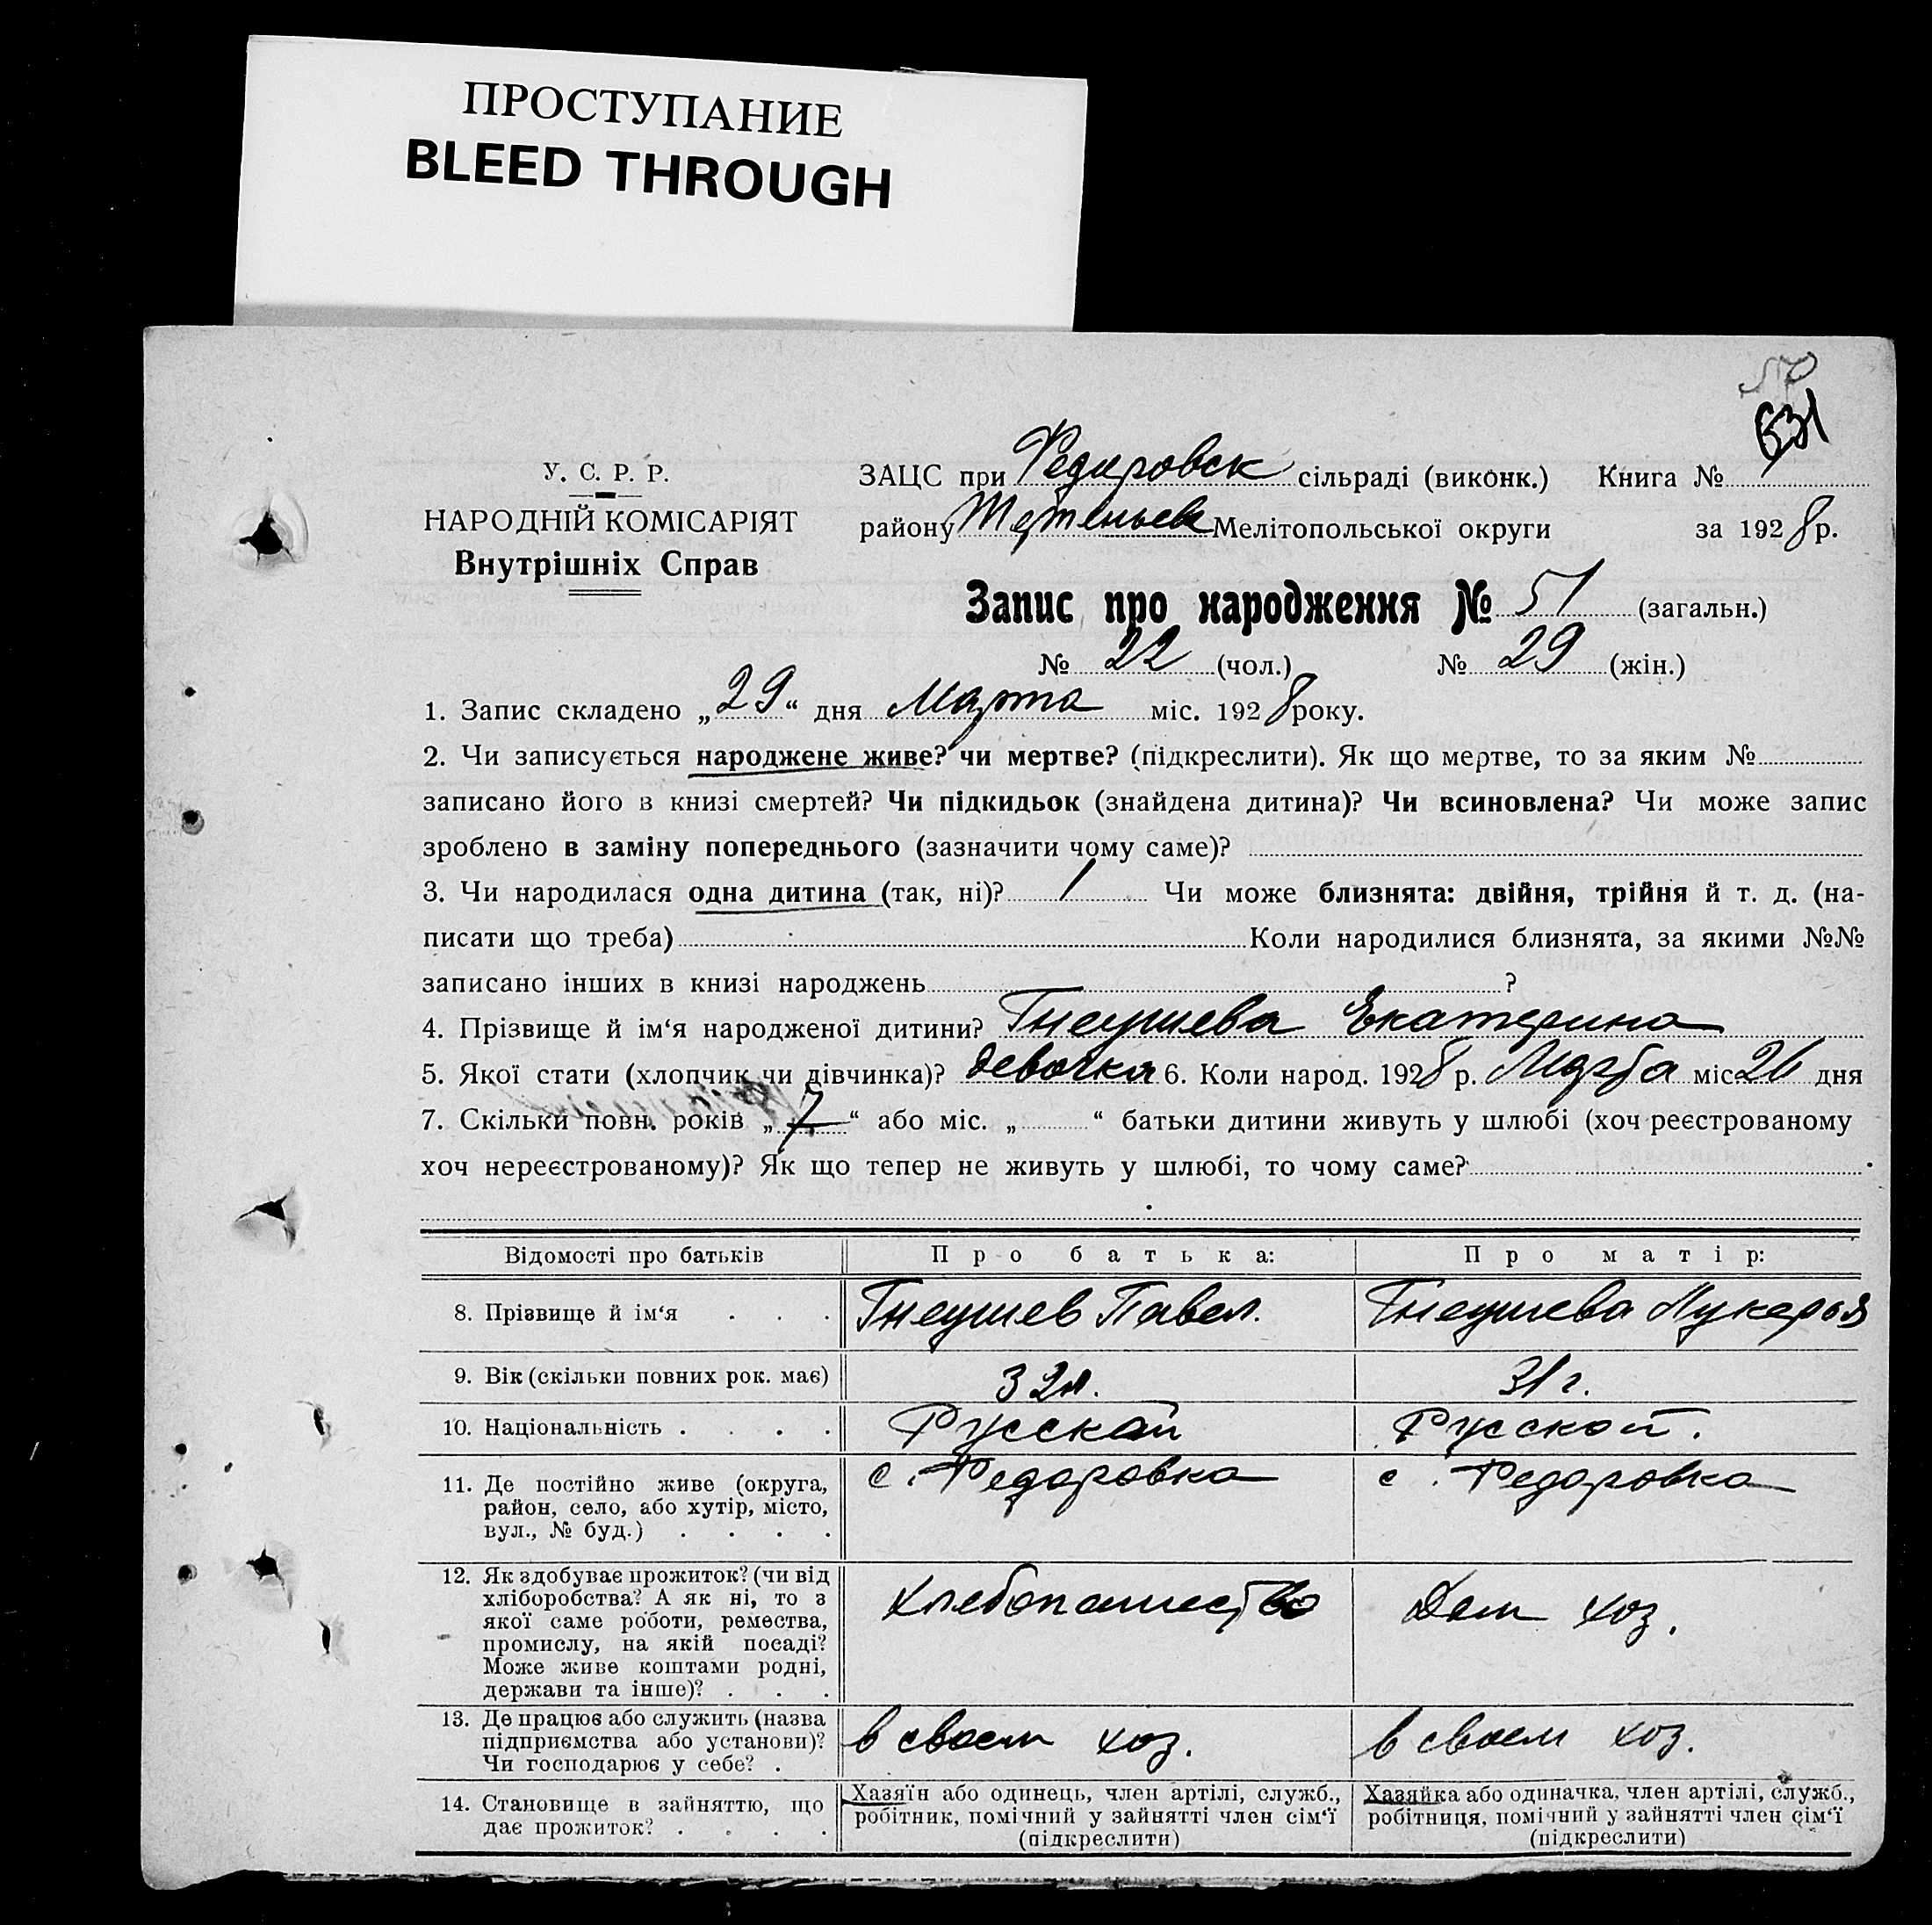 ПРОСТУПАНИЕ
BLEED THROUGH
570
631
У. С. Р. Р.
НАРОДНІЙ КОМІСАРІЯТ
Внутрішніх Справ
ЗАЦС при Федоровск сільраді (виконк.) Книга №
району Мелітопольської округи за 1928 р.
Запис про народження № 51 (загальн.)
№ 22 (чол.) № 29 (жін.)
1. Запис складено „29“ дня Марта міс. 1928 року.
2. Чи записується народжене живе? чи мертве? (підкреслити). Як що мертве, то за яким №
записано його в книзі смертей? Чи підкидьок (знайдена дитина)? Чи всиновлена? Чи може запис
зроблено в заміну попереднього (зазначити чому саме)?
3. Чи народилася одна дитина (так, ні)? 1 Чи може близнята: двійня, трійня й т. д. (на-
писати що треба) Коли народилися близнята, за якими №№
записано інших в книзі народжень ?
4. Прізвище й ім‘я народженої дитини? Гнеушева Екатерина
5. Якої стати (хлопчик чи дівчинка)? девочка 6. Коли народ. 1928 р. Марта міс 26 дня
7. Скільки повн. років „7“ або міс. „ “ батьки дитини живуть у шлюбі (хоч реєстрованому
хоч нереєстрованому)? Як що тепер не живуть у шлюбі, то чому саме?
Відомості про батьків Про батька: Про матір:
8. Прізвище й ім‘я . . . Гнеушев Павел. Гнеушева Лукерья
9. Вік (скільки повних рок. має) 32 л. 31 г.
10. Національність . . . . Русской Русской.
11. Де постійно живе (округа, с. Федоровка с. Федоровка
район, село, або хутір, місто,
вул., № буд.) . . . .
12. Як здобуває прожиток? (чи від
хліборобства? А як ні, то з хлебопашество Дом хоз.
якої саме роботи, ремества,
промислу, на якій посаді?
Може живе коштами родні,
держави та інше)? . . .
13. Де працює або служить (назва
підприємства або установи)? в своем хоз. в своем хоз.
Чи господарює у себе? .
14. Становище в зайняттю, що Хазяїн або одинець, член артілі, служб., Хазяйка або одиначка, член артілі, служб.,
дає прожиток? . . . . робітник, помічний у зайнятті член сім‘ї робітниця, помічний у зайнятті член сім‘ї
(підкреслити) (підкреслити)